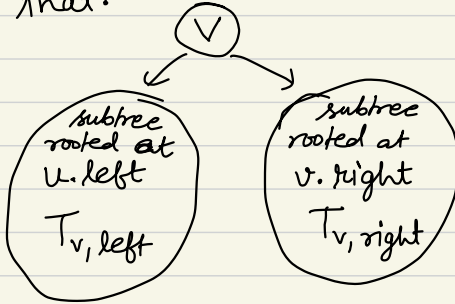 that:
V
subtree
rooted at
v.left
T_v, left
subtree
rooted at
v.right
T_v, right